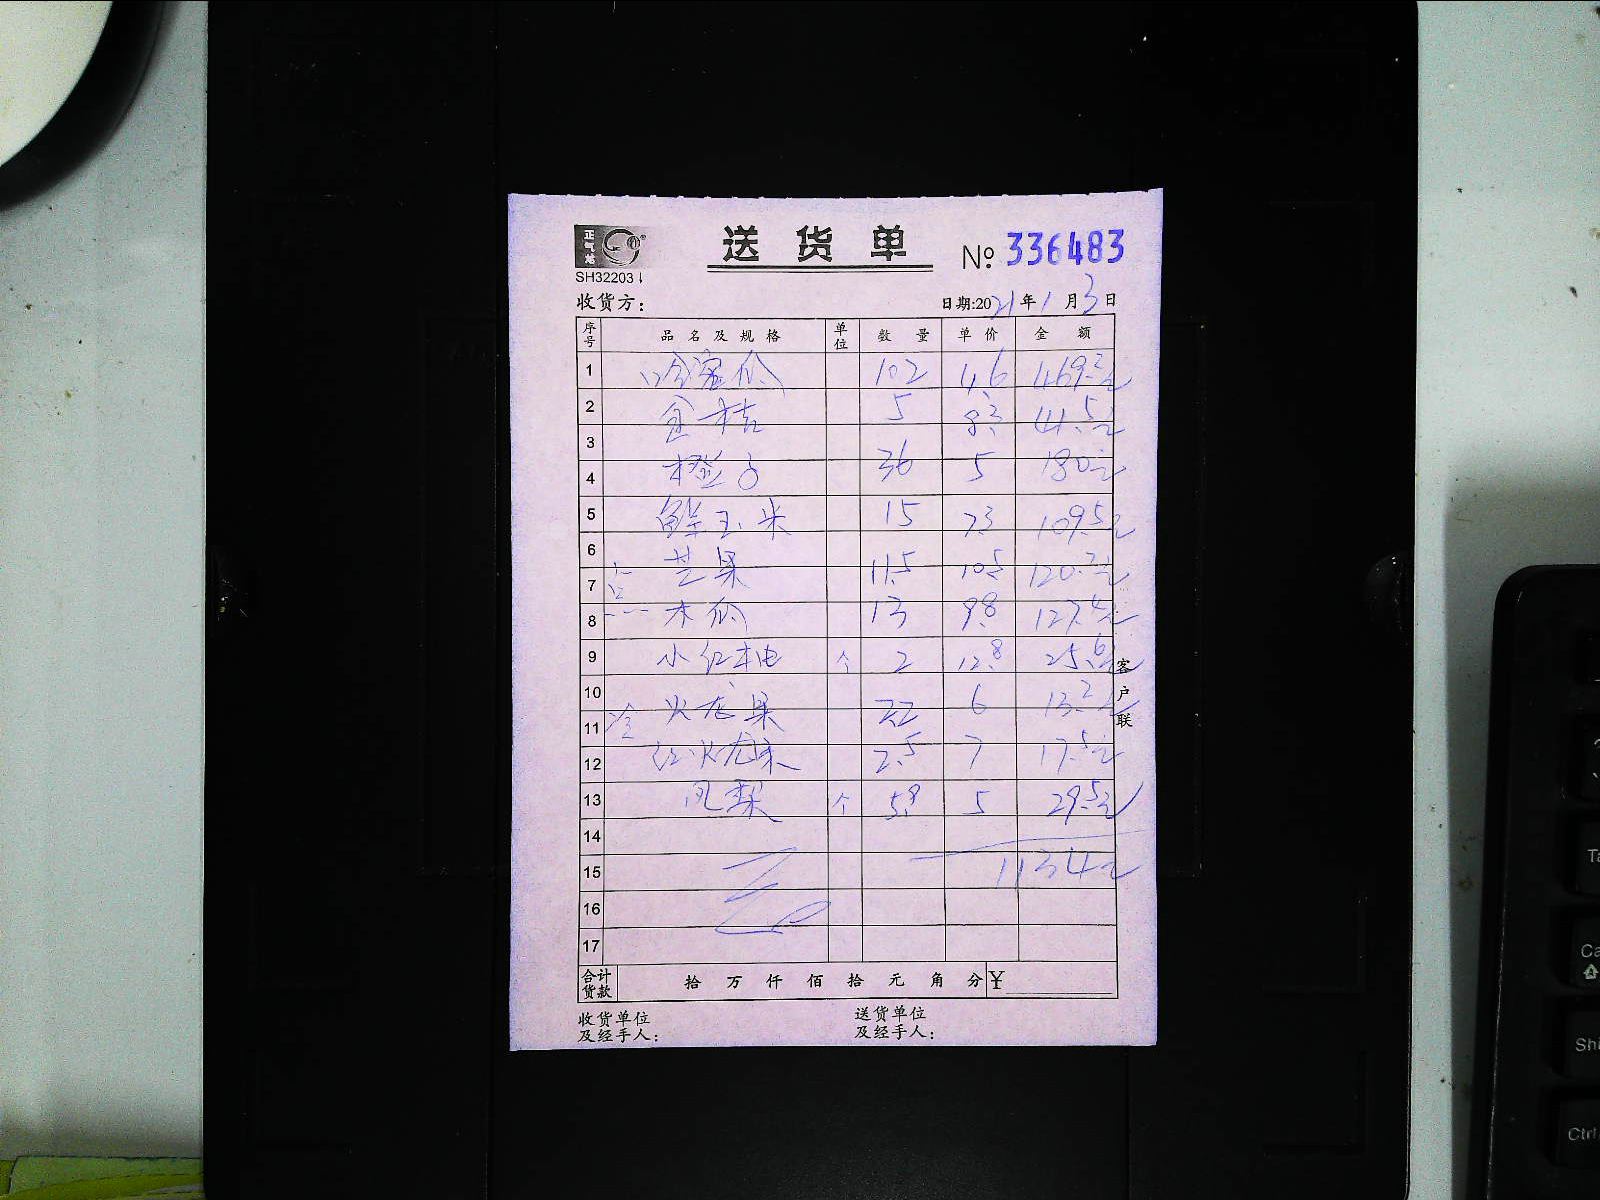 正气炉
SH32203
送货单 № 336483
收货方: 日期:2021年1月3日
序号 品名及规格 单位 数量 单价 金额
1 哈密瓜 102 4.6 469.2元
2 金桔 5 8.3 41.5元
3
4 橙子 36 5 180元
5 鲜玉米 15 7.3 109.5元
6 芒果 11.5 10.5 120.7元
7 点
8 木瓜 13 9.8 127.4元
9 小红桔 个 2 12.8 25.6元
10 火龙果 2.2 6 13.2元
11 冷
12 红火龙果 2.5 7 17.5元
13 凤梨 个 5.9 5 29.5元
14
15 1134元
16
17
合计货款 拾 万 仟 佰 拾 元 角 分 ¥
收货单位 送货单位
及经手人: 及经手人:
客户联
Ta
Ca
Shi
Ctrl